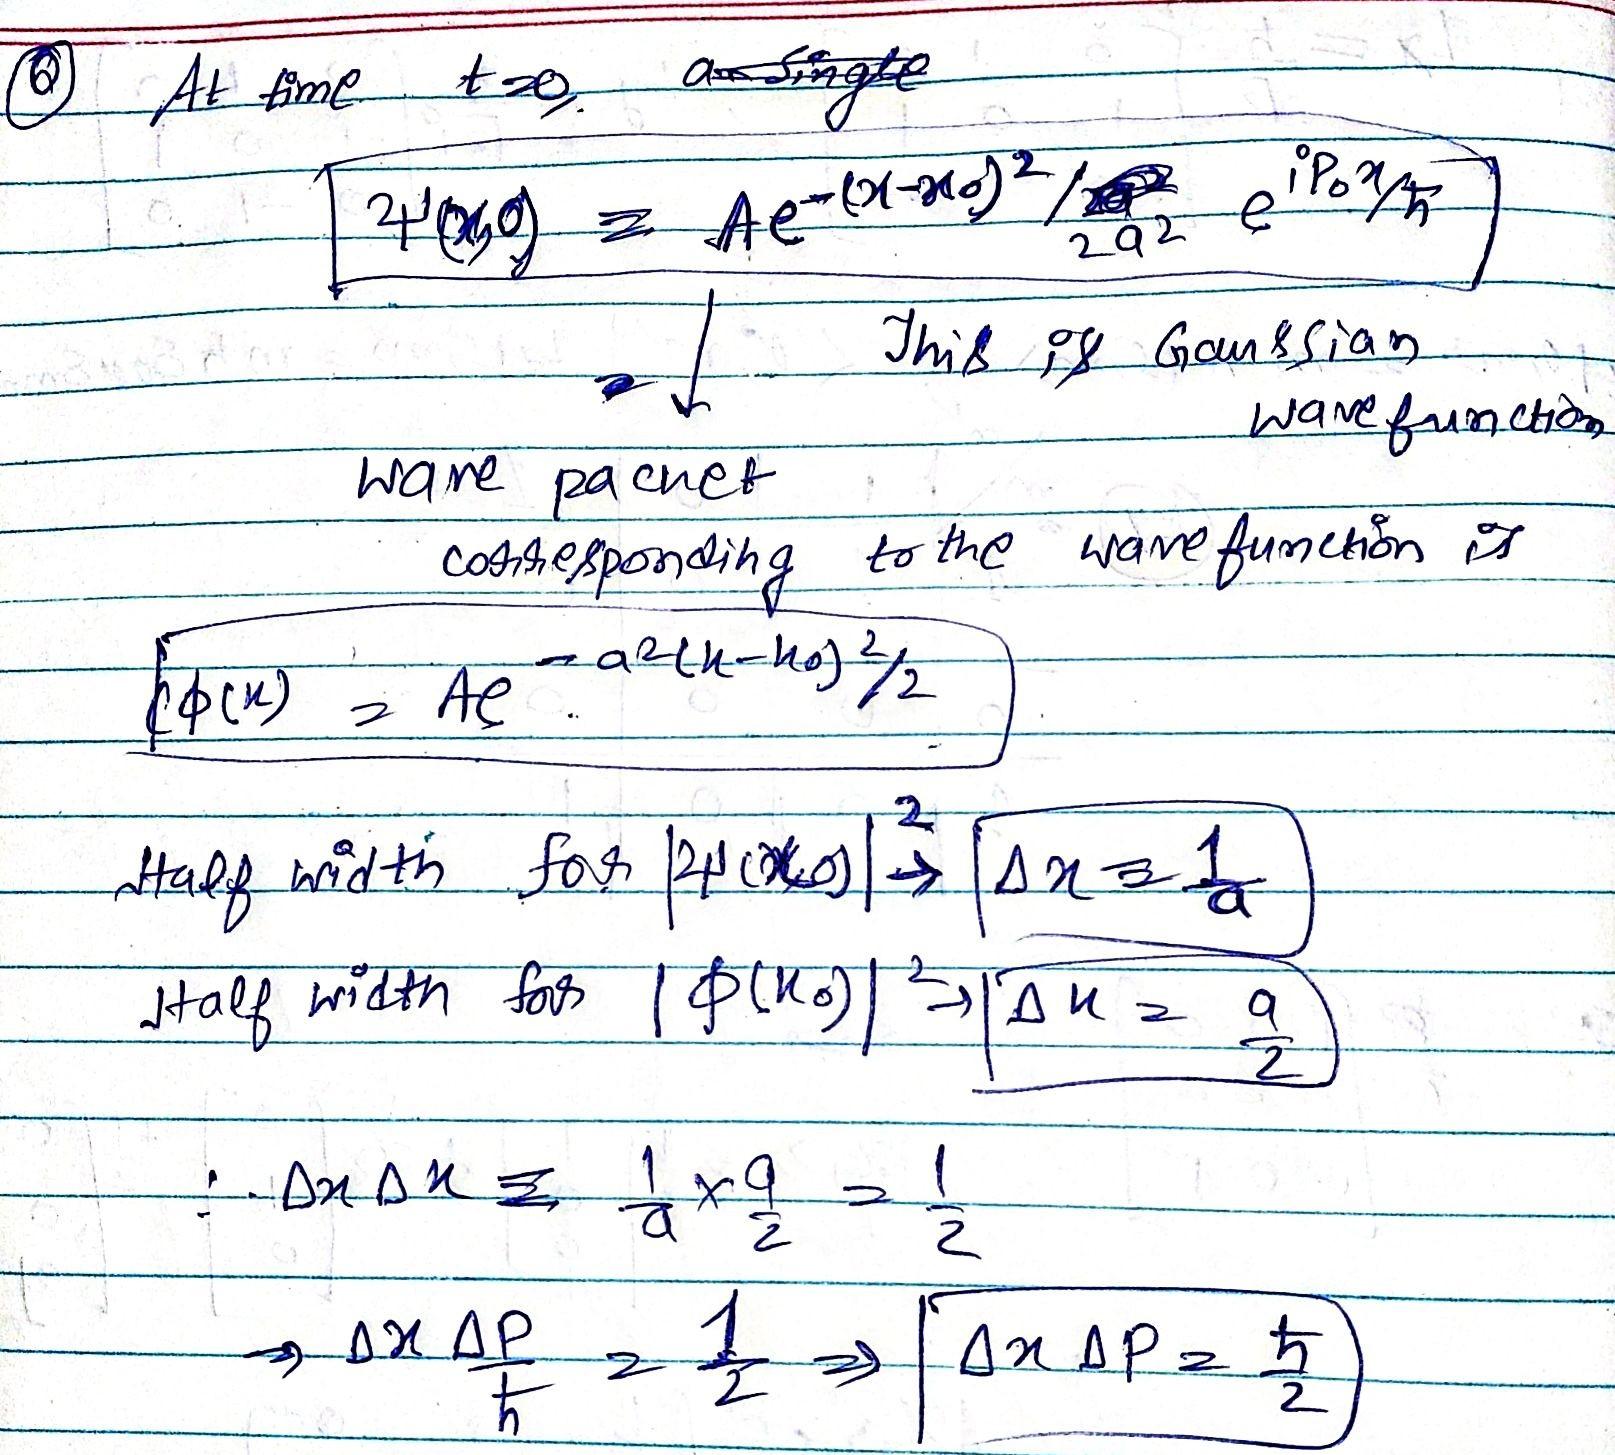 Q At time t=0, a single
ψ(x,0) = Ae^{-(x-x₀)²/2a²} e^{iP₀x/ħ}
This is Gaussian
= ↓
wavefunction
wave packet
corresponding to the wavefunction is
φ(k) = Ae^{-a²(k-k₀)²/2}
Half width for |ψ(x,0)|² → Δx = 1/a
Half width for |φ(k₀)|² → Δk = a/2
∴ Δx Δk = 1/a × a/2 = 1/2
→ Δx ΔP/ħ = 1/2 ⇒ Δx ΔP = ħ/2